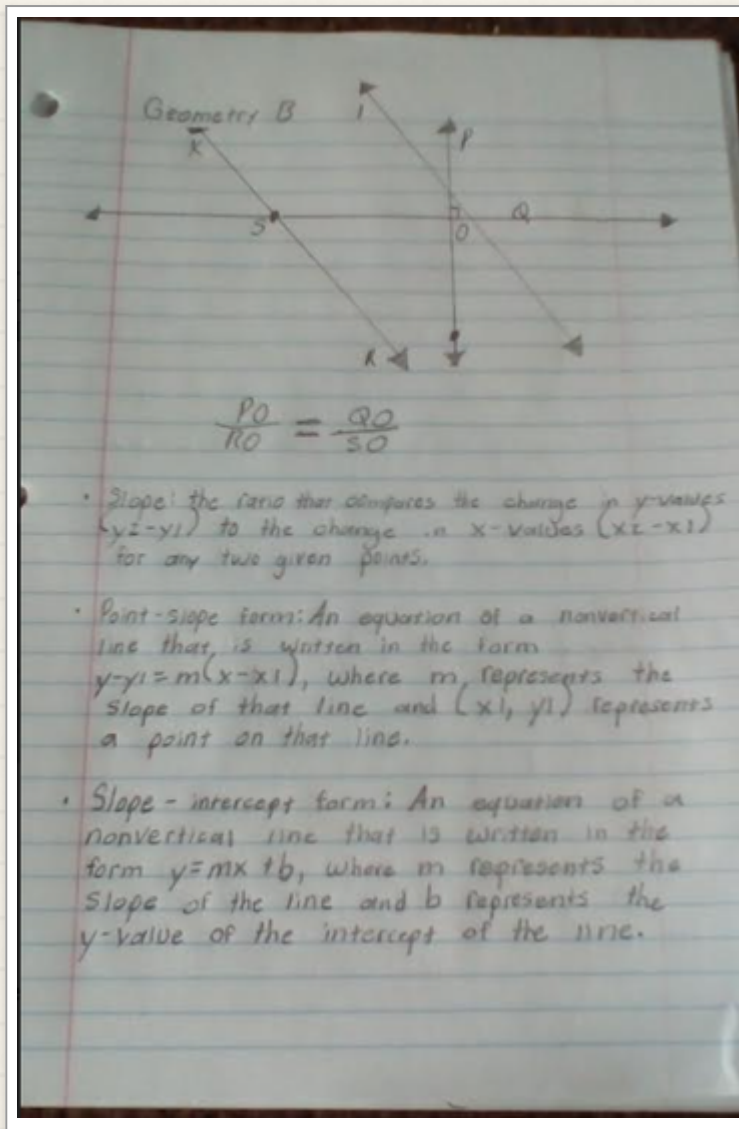 Geometry B
K
1
P
S
O
Q
R
PO
RO
=
QO
SO
• Slope: the ratio that compares the change in y-values
(y2-y1) to the change in x-values (x2-x1)
for any two given points.
• Point-slope form: An equation of a nonvertical
line that is written in the form
y-y1=m(x-x1), where m represents the
slope of that line and (x1, y1) represents
a point on that line.
• Slope-intercept form: An equation of a
nonvertical line that is written in the
form y=mx+b, where m represents the
slope of the line and b represents the
y-value of the intercept of the line.